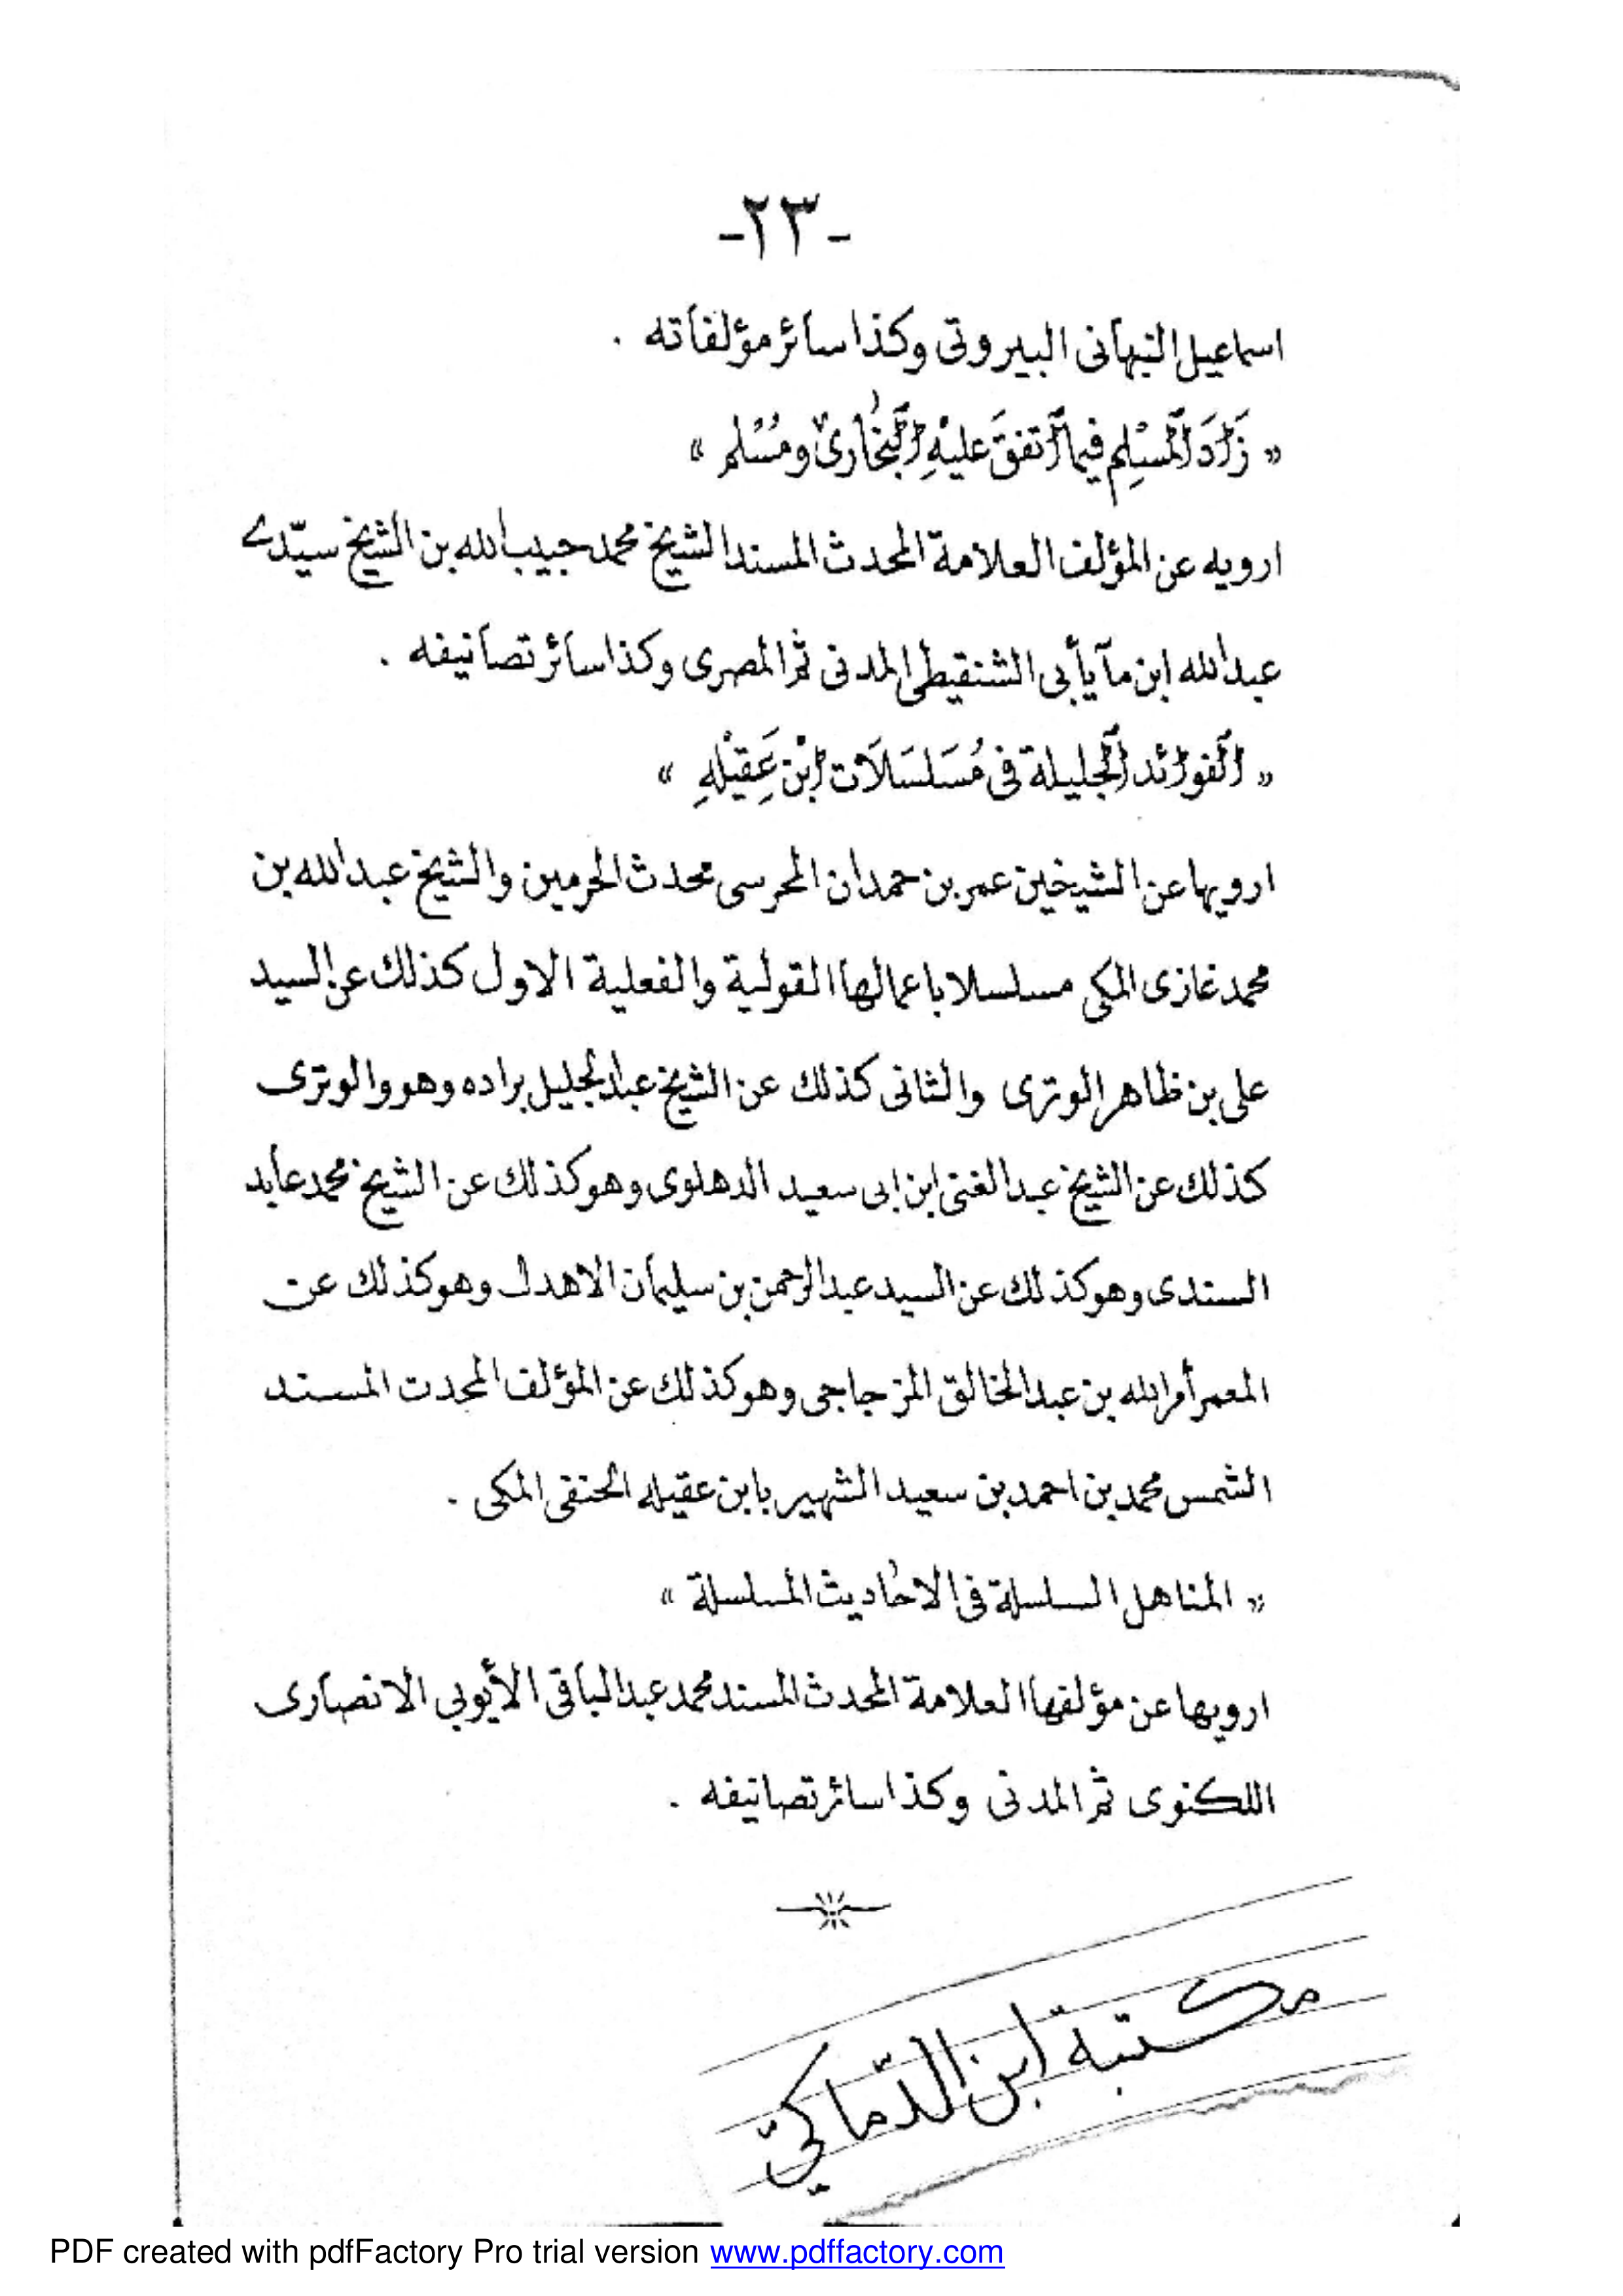 -٢٣-
اسماعيل النبهانى البيروتى وكذا سائر مؤلفاته .
« زَادَ الْمُسْلِم فيما اتفقَ عليْهِ البُخَارىْ ومُسْلم »
ارويه عن المؤلف العلامة المحدث المسند الشيخ محمد حبيب الله بن الشيخ سيّدے
عبد الله ابن مآيأبى الشنقيطى المدنى ثم المصرى وكذا سائر تصانيفه .
« الفوائد الجليلة فى مُسَلسَلَات ابْن عَقِيْلهِ »
ارويها عن الشيخين عمر بن حمدان المحرسى محدث الحرمين والشيخ عبد الله بن
محمد غازى المكى مسلسلا باعمالها القولية والفعلية الاول كذلك عن السيد
على بن ظاهر الوترى والثانى كذلك عن الشيخ عبد الجليل براده وهو والوترى
كذلك عن الشيخ عبد الغنى ابن ابى سعيد الدهلوى وهو كذلك عن الشيخ محمد عابد
السندى وهو كذلك عن السيد عبد الرحمن بن سليمان الاهدل وهو كذلك عن
المعمر أمر الله بن عبد الخالق المزجاجى وهو كذلك عن المؤلف المحدث المسند
الشمس محمد بن احمد بن سعيد الشهير بابن عقيله الحنفى المكى .
« المناهل السلسلة فى الاحاديث المسلسلة »
ارويها عن مؤلفها العلامة المحدث المسند محمد عبد الباقى الأيوبي الانصارى
اللكنوى ثم المدنى وكذا سائر تصانيفه .
مكتبة ابن الدّماكيّ
PDF created with pdfFactory Pro trial version www.pdffactory.com